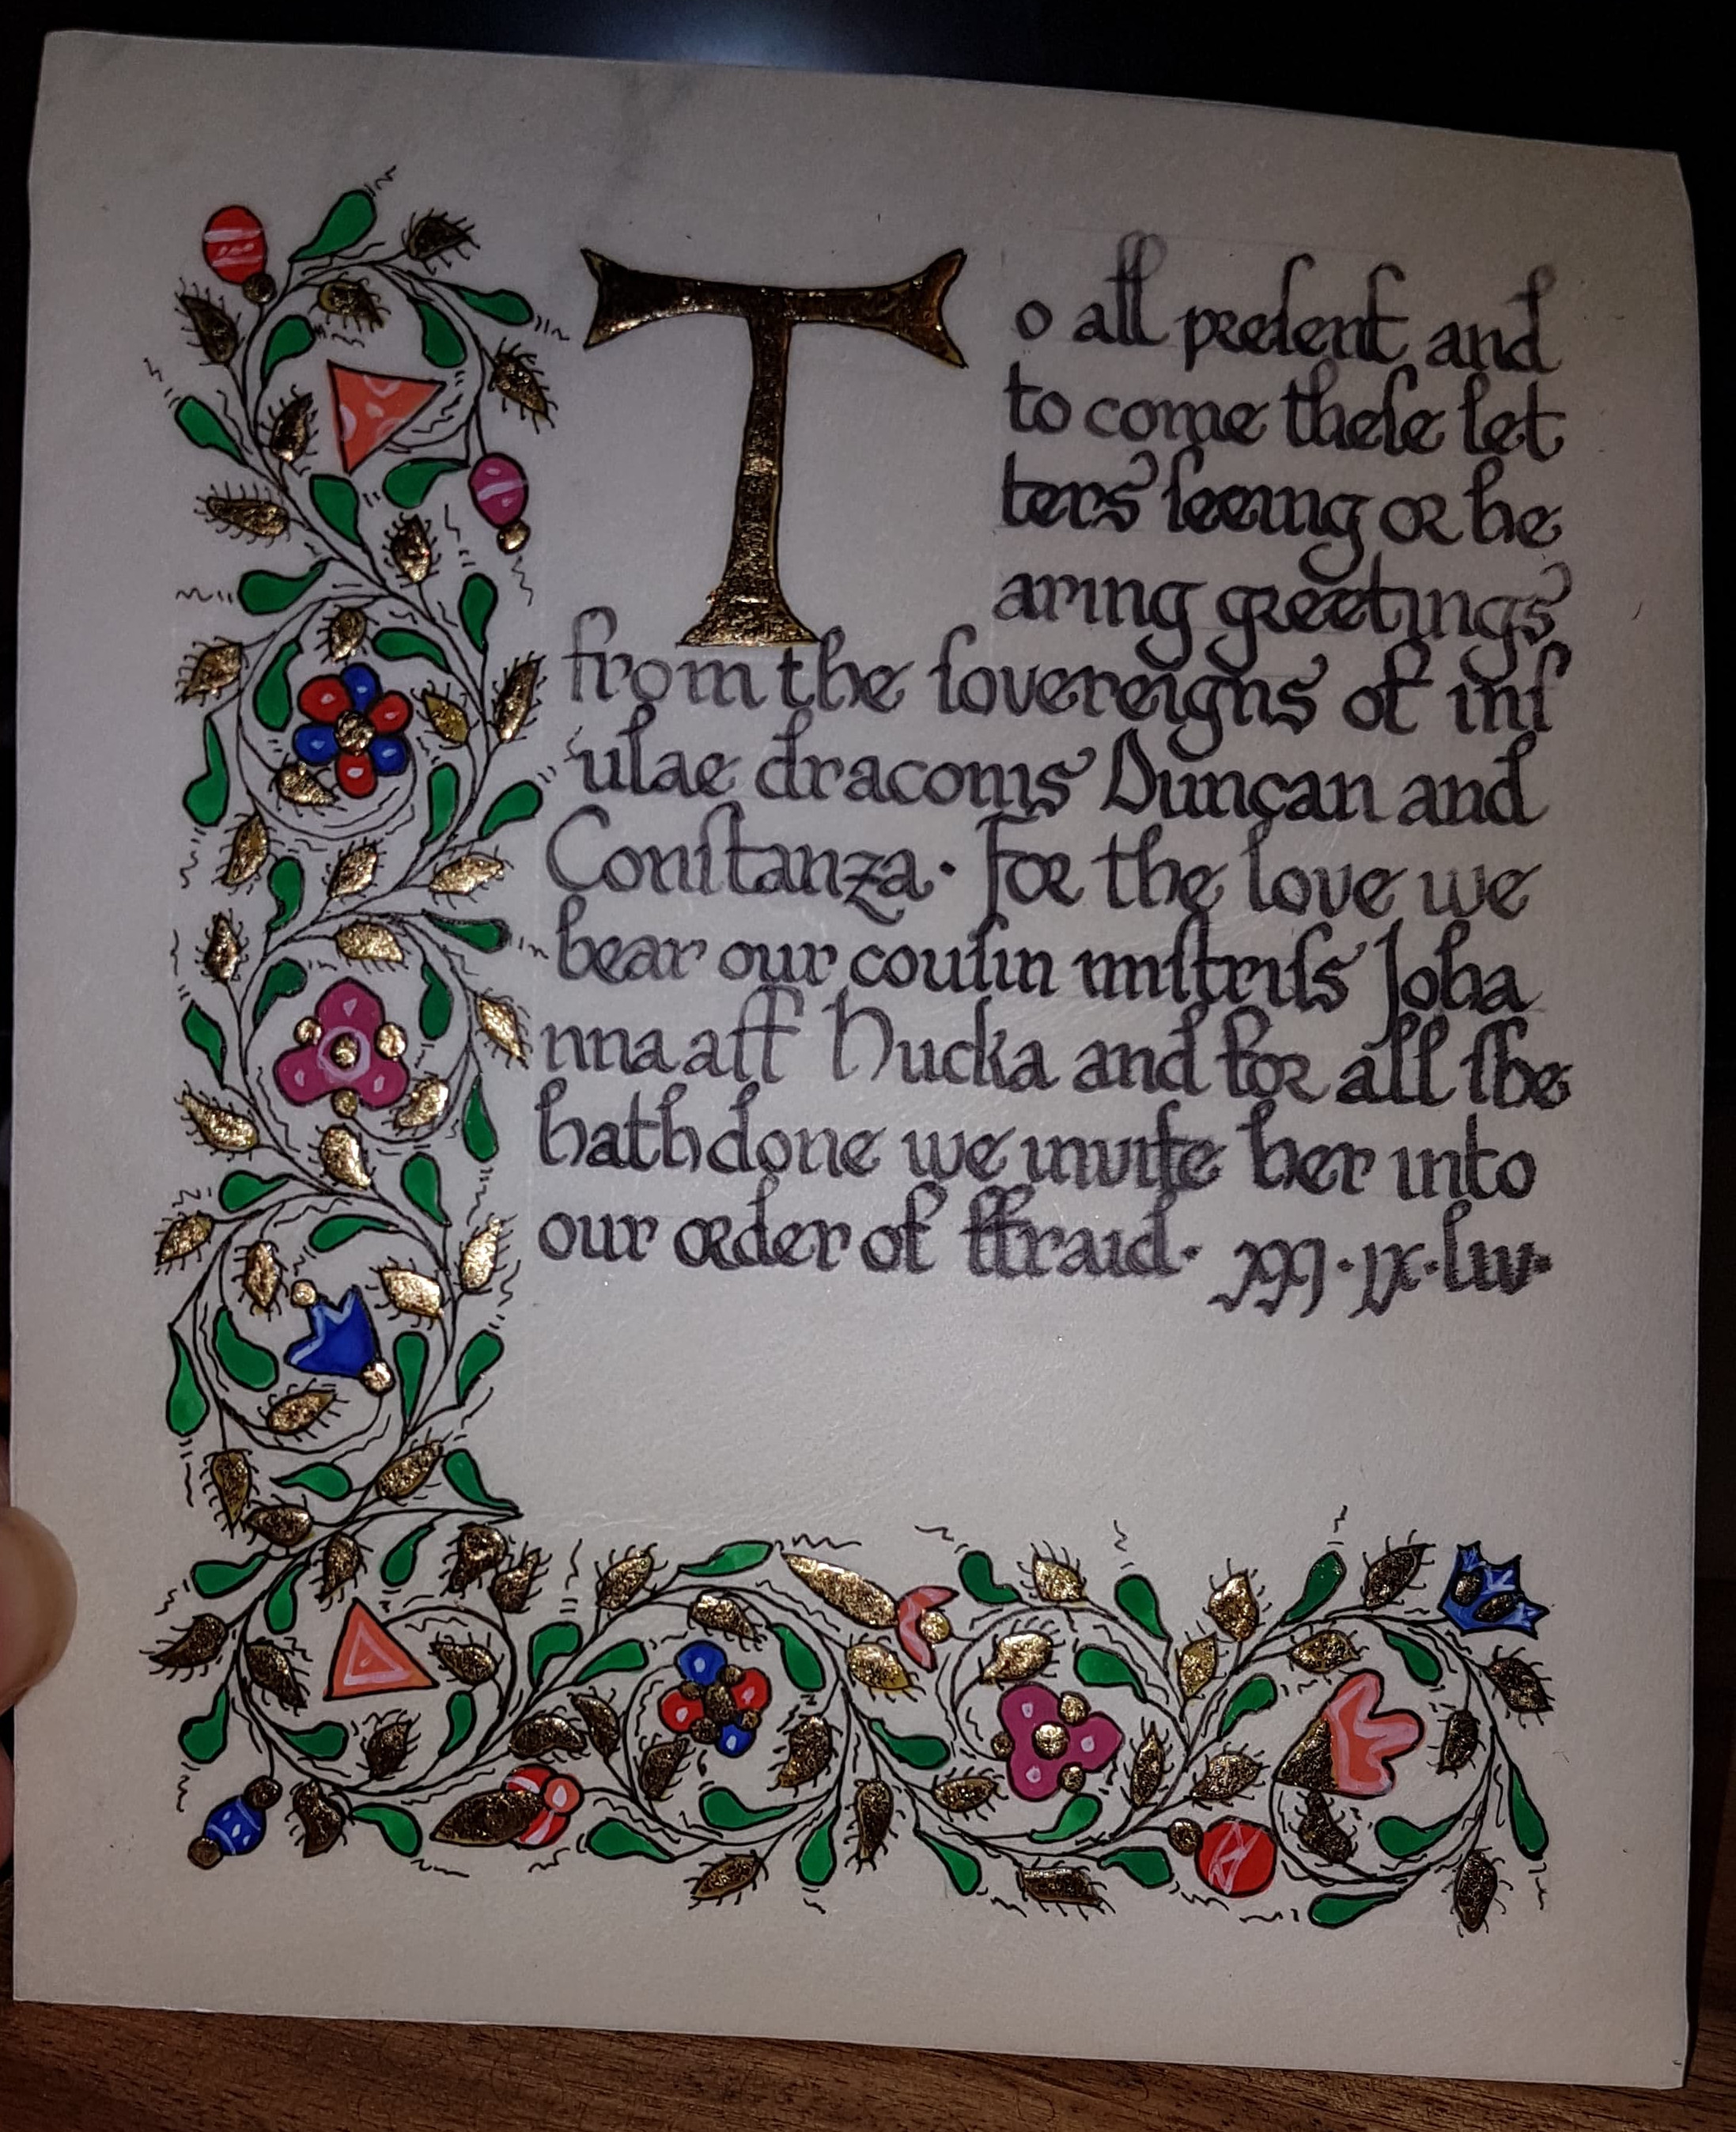 To all preſent and
to come theſe let
ters ſeeing or he
aring greetings
from the ſovereigns of inſ
ulae draconis Duncan and
Conſtanza· For the love we
bear our couſin miſtriſs Joha
nna aff Hucka and for all ſhe
hath done we invite her into
our order of ffraid· xxj·ix·liv·